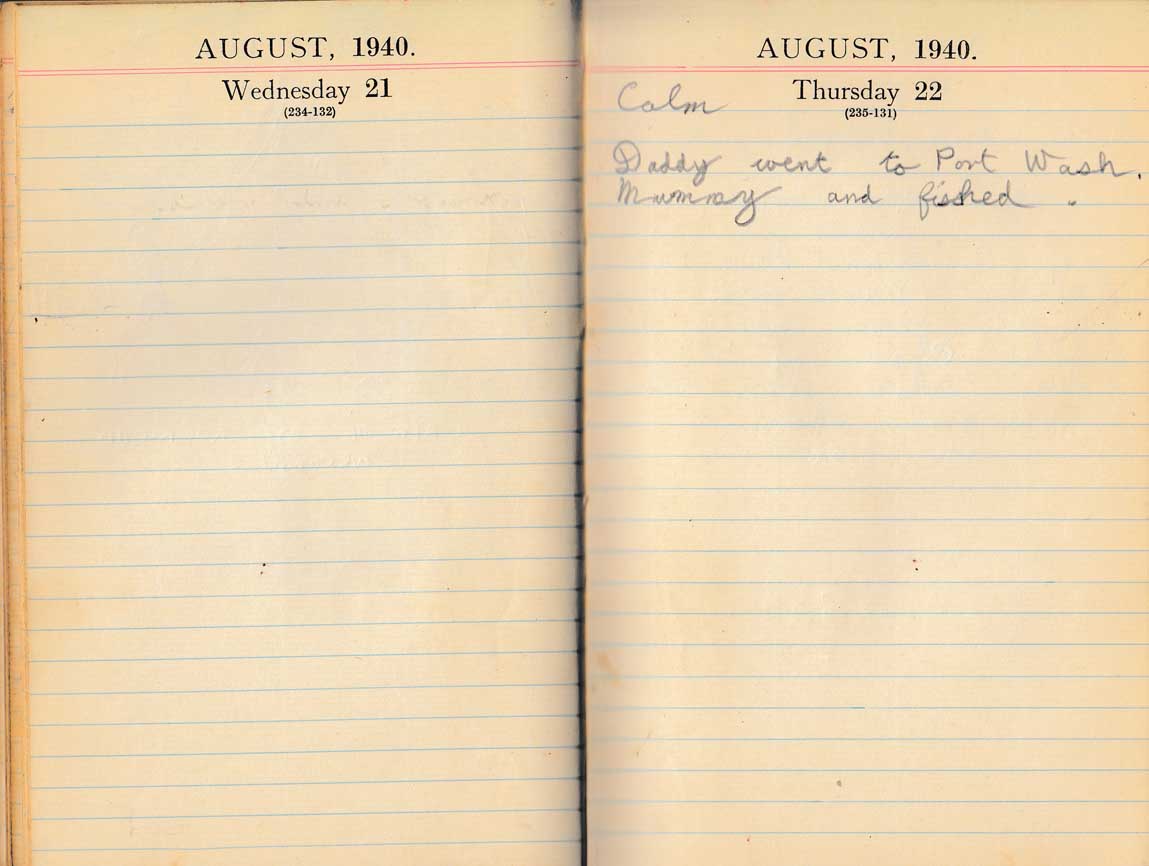 AUGUST, 1940.
Wednesday 21
(234-132)
AUGUST, 1940.
Thursday 22
(235-131)
Calm
Daddy went to Port Wash.
Mummy and fished .